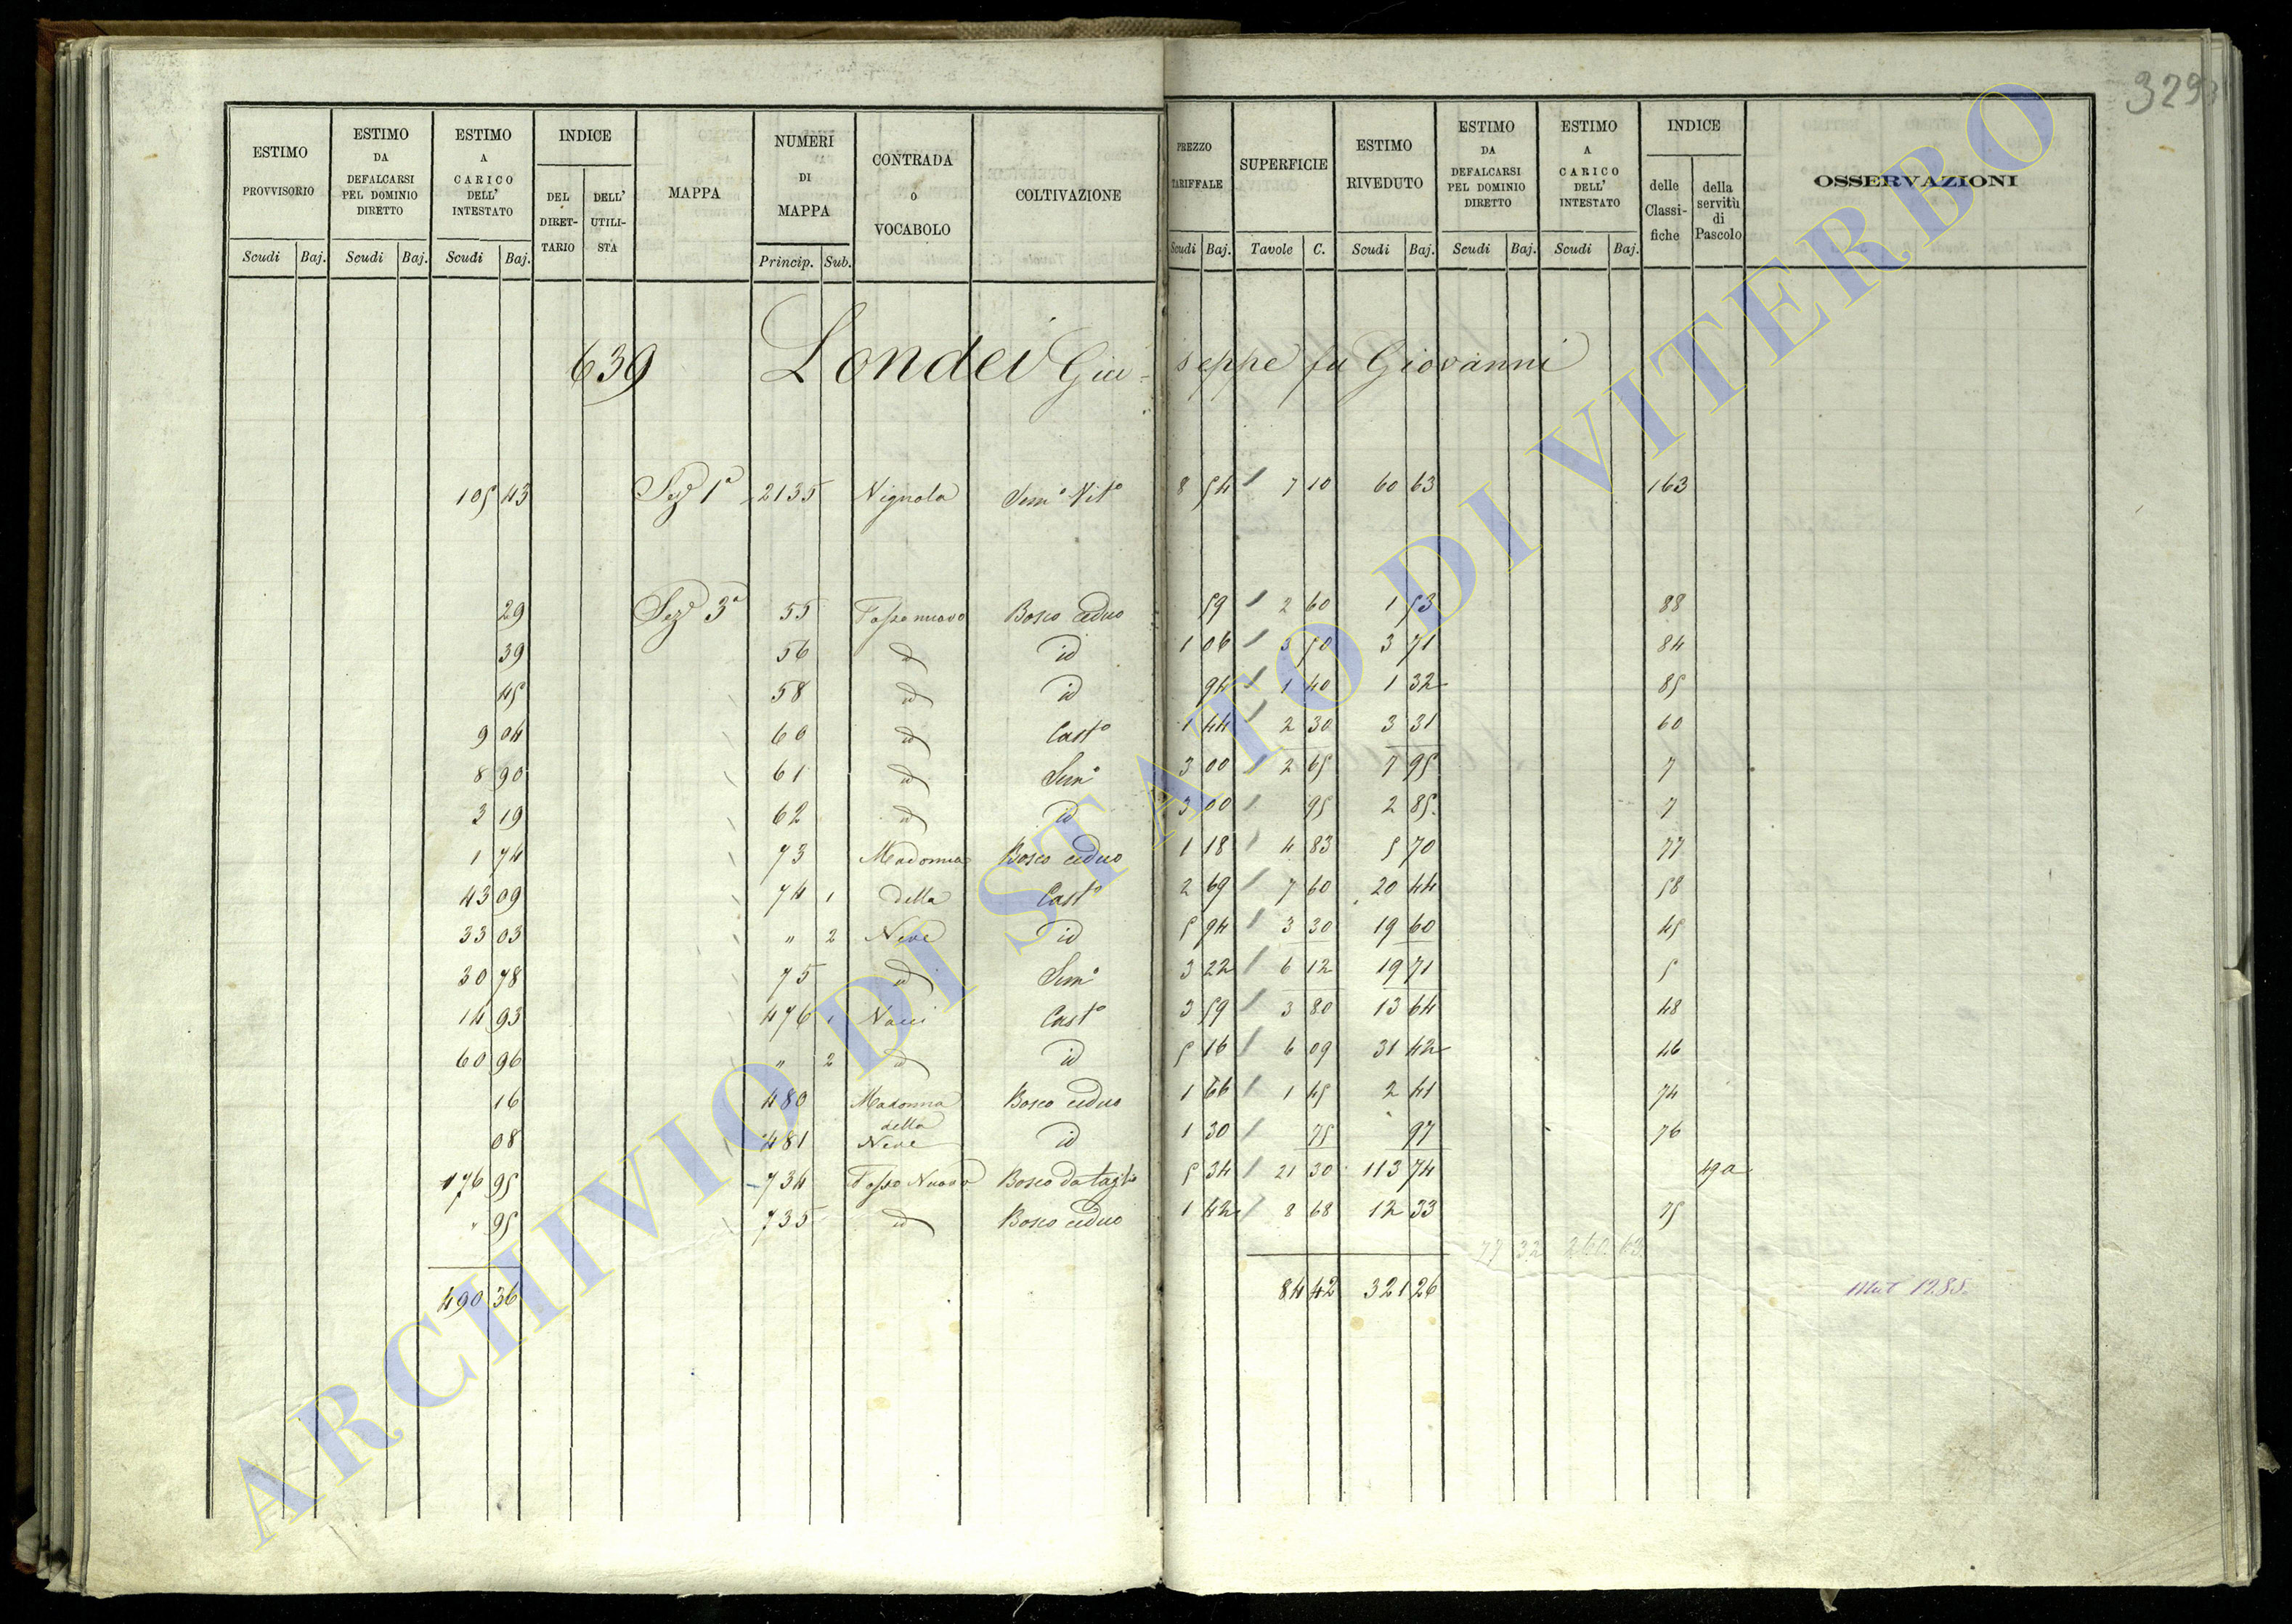 329
ESTIMO PROVVISORIO Scudi Baj.
ESTIMO DA DEFALCARSI PEL DOMINIO DIRETTO Scudi Baj.
ESTIMO A CARICO DELL' INTESTATO Scudi Baj.
INDICE DEL DIRETTARIO DELL' UTILISTA
MAPPA
NUMERI DI MAPPA Princip. Sub.
CONTRADA O VOCABOLO
COLTIVAZIONE
PREZZO TARIFFALE Scudi Baj.
SUPERFICIE Tavole C.
ESTIMO RIVEDUTO Scudi Baj.
ESTIMO DA DEFALCARSI PEL DOMINIO DIRETTO Scudi Baj.
ESTIMO A CARICO DELL' INTESTATO Scudi Baj.
INDICE delle Classifiche della servitù di Pascolo
OSSERVAZIONI
639 Londei Giuseppe fu Giovanni
105 43 Sez.e 1a 2135 Vignola Sem.o Vit.o 8 54 7 10 60 63 163
29 Sez.e 3a 55 Fosso nuovo Bosco ceduo 59 2 60 1 53 88
39 56 id id 1 06 3 50 3 71 84
45 58 id id 94 1 40 1 32 85
9 04 60 id Cast.o 1 44 2 30 3 31 60
8 90 61 id Sem.o 3 00 2 65 7 95 7
3 19 62 id id 3 00 95 2 85 7
1 74 73 Madonna Bosco ceduo 1 18 4 83 5 70 77
43 09 74 1 della Cast.o 2 69 7 60 20 44 58
33 03 " 2 Neve id 5 94 3 30 19 60 45
30 78 75 id Sem.o 3 22 6 12 19 71 5
14 93 476 1 Cast.o 3 59 3 80 13 64 48
60 96 " 2 id id 5 16 6 09 31 42 46
16 480 Madonna Bosco ceduo 1 66 1 45 2 41 74
08 481 della Neve id 1 30 75 97 76
176 95 734 Fosso Nuovo Bosco da taglio 5 34 21 30 113 74 49a
" 95 735 id Bosco ceduo 1 42 8 68 12 33 75
77 32 260 63
490 36 84 42 321 26
ARCHIVIO DI STATO DI VITERBO